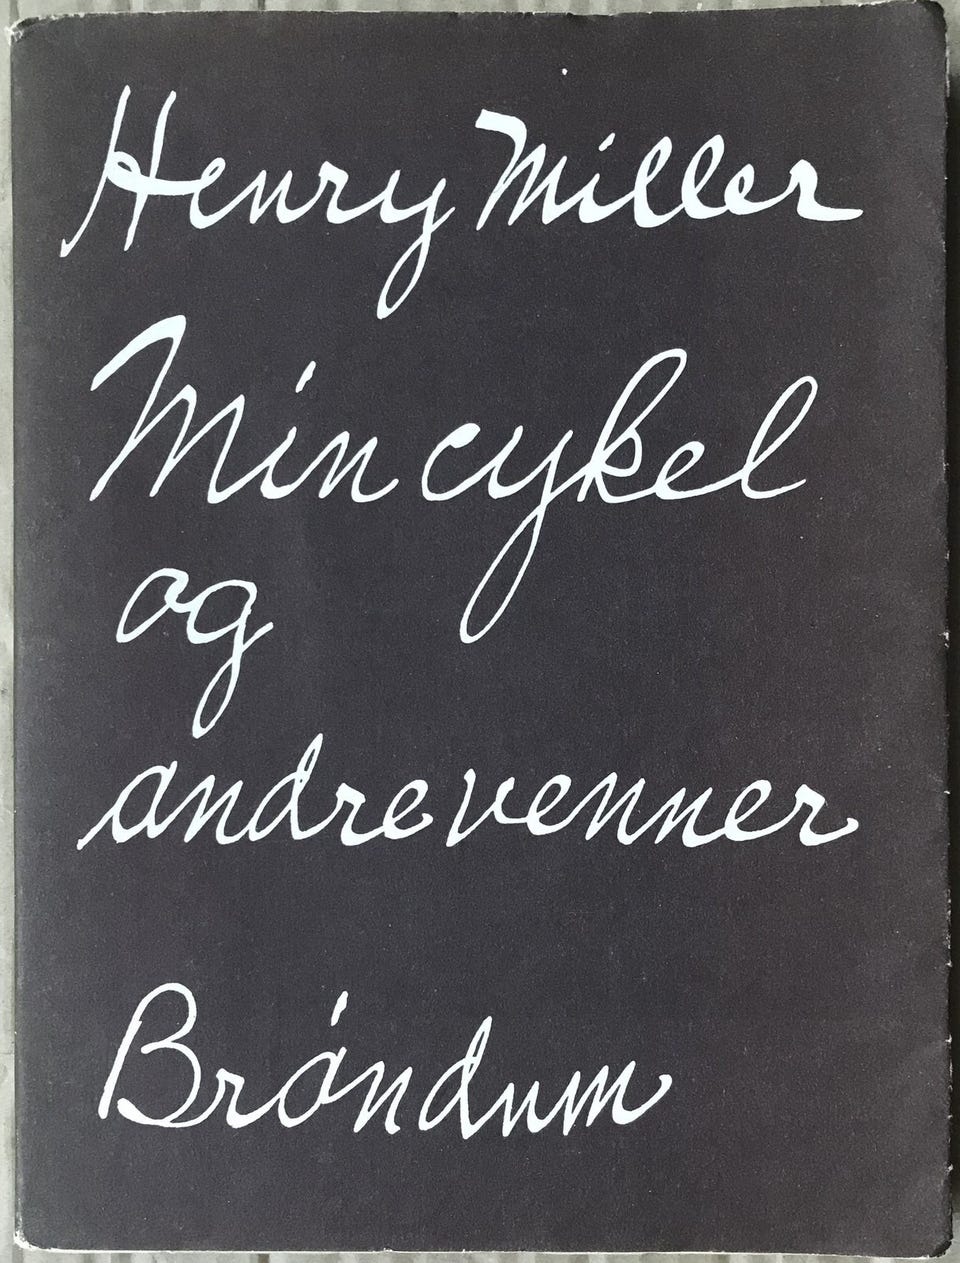 Henry Miller
Min cykel
og
andre venner
Bróndum